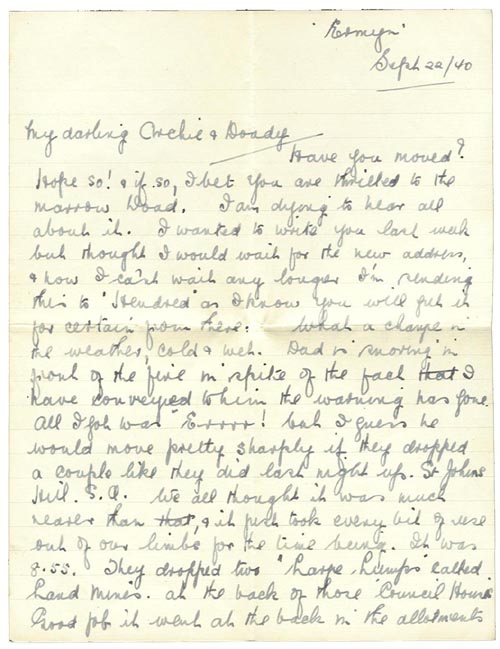 "Ermyn"
Sept 22/40
My darling Archie & Doady
Have you moved?
Hope so! & if so, I bet you are thrilled to the
marrow Doad. I am dying to hear all
about it. I wanted to write you last week
but thought I would wait for the new address,
& now I can't wait any longer I'm sending
this to "Hendred" as I know you will get it
for certain from there. What a change in
the weather, cold & wet. Dad is snoring in
front of the fire in spite of the fact that I
have conveyed to him the warning has gone.
All I got was "Errrr! but I guess he
would move pretty sharply if they dropped
a couple like they did last night up. St Johns
Hill. S.A. We all thought it was much
nearer than that, & it just took every bit of use
out of our limbs for the time being. It was
8.55. They dropped two "large lumps" called
Land mines. at the back of those Council Houses
Good job it went at the back in the allotments